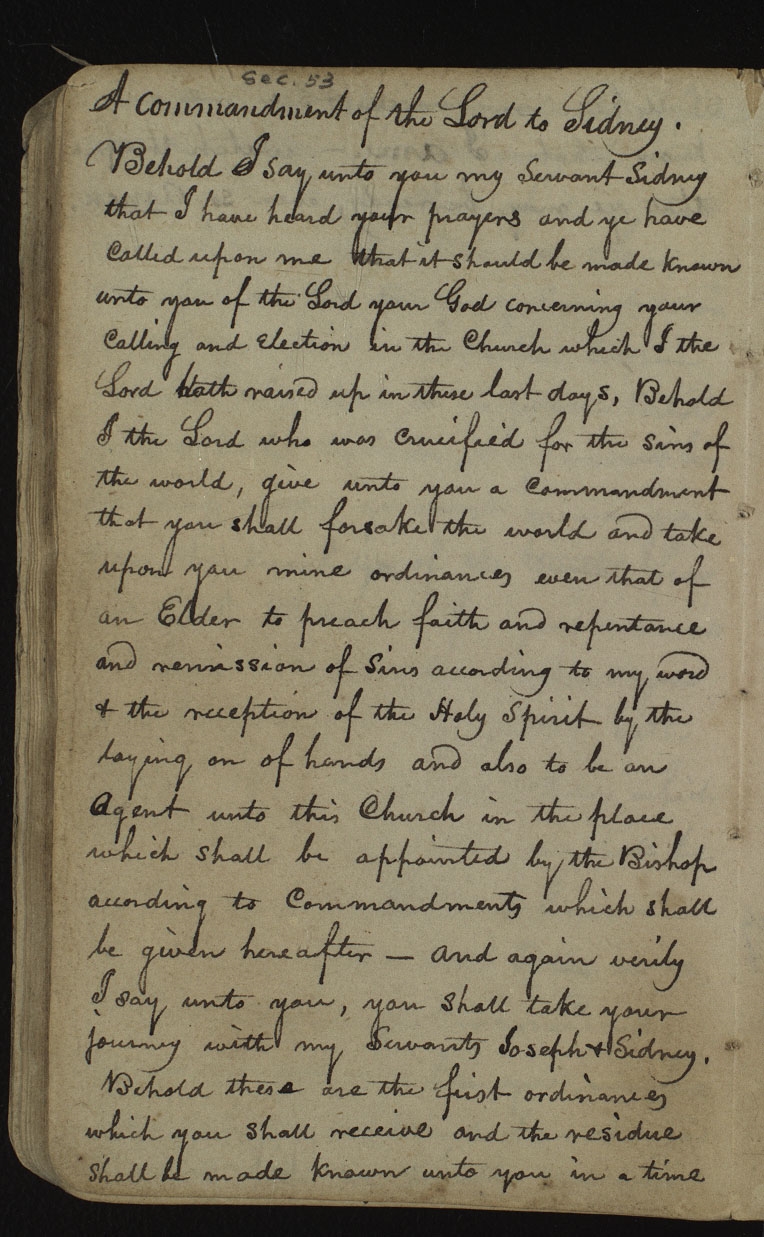 Sec. 53
A commandment of the Lord to Sidney.
Behold I say unto you my Servant Sidney
that I have heard your prayers and ye have
Called upon me that it should be made known
unto you of the Lord your God concerning your
Calling and Election in the Church which I the
Lord hath raised up in these last days, Behold
I the Lord who was crucified for the sins of
the world, give unto you a Commandment
that you shall forsake the world and take
upon you mine ordinances even that of
an Elder to preach faith and repentance
and remission of Sins according to my word
& the reception of the Holy Spirit by the
laying on of hands and also to be an
Agent unto this Church in the place
which shall be appointed by the Bishop
according to Commandments which shall
be given hereafter — and again verily
I say unto you, you shall take your
journey with my Servants Joseph & Sidney.
Behold these are the first ordinances
which you shall receive and the residue
shall be made known unto you in a time